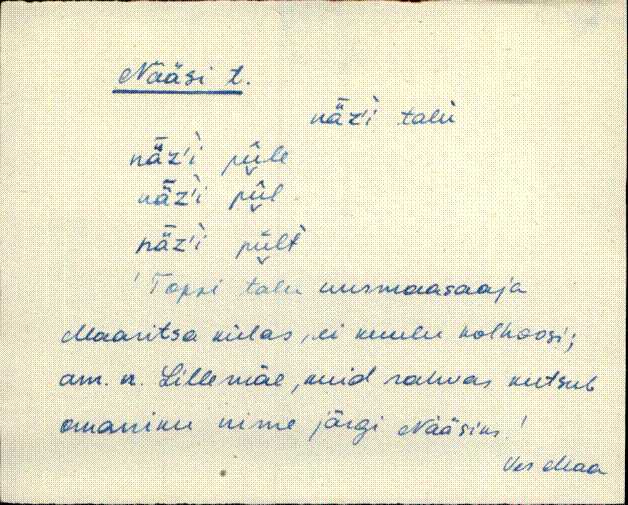 Nääsi t.
nǟź'i talu
nǟź'i pū̬le
nǟź'i pū̬l
nǟź'i pū̬lt
'Topsi talu uusmaasaaja
Maaritsa külas, ei kuulu kolhoosi;
am. n. Lillemäe, kuid rahvas kutsub
omaniku nime järgi Nääsiks!
Ves Maa